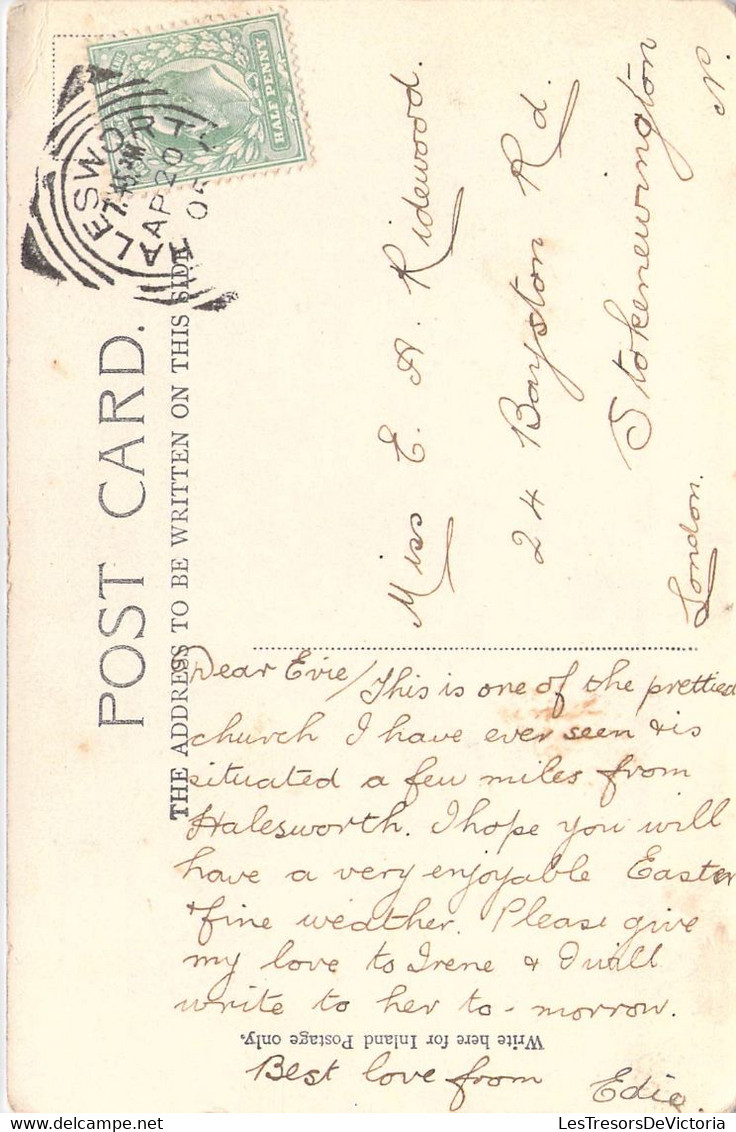 HALF PENNY
ALESWORT
7.45 PM
AP 20
05
POST CARD.
THE ADDRESS TO BE WRITTEN ON THIS SIDE
Miss E. A. Ridewood.
24 Bayston Rd.
Stokenewington
London.
Dear Evie/This is one of the prettied
church I have ever seen & is
situated a few miles from
Halesworth. I hope you will
have a very enjoyable Easter
& fine weather. Please give
my love to Irene & I will
write to her to-morrow.
Write here for Inland Postage only.
Best love from Edie.
LesTresorsDeVictoria